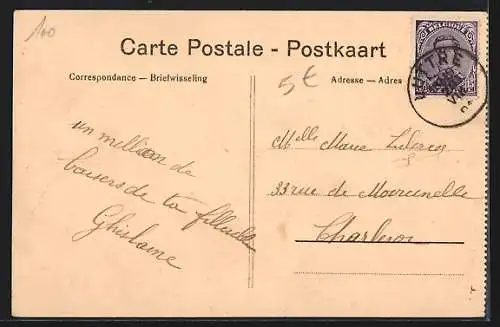 100
BELGIQUE
Carte Postale - Postkaart
Correspondance — Briefwisseling
5€
Adresse — Adres
un million de
baisers de ta filleule
Ghislaine
Melle Marie Leclercq
33 rue de Marcinelle
Charleroi